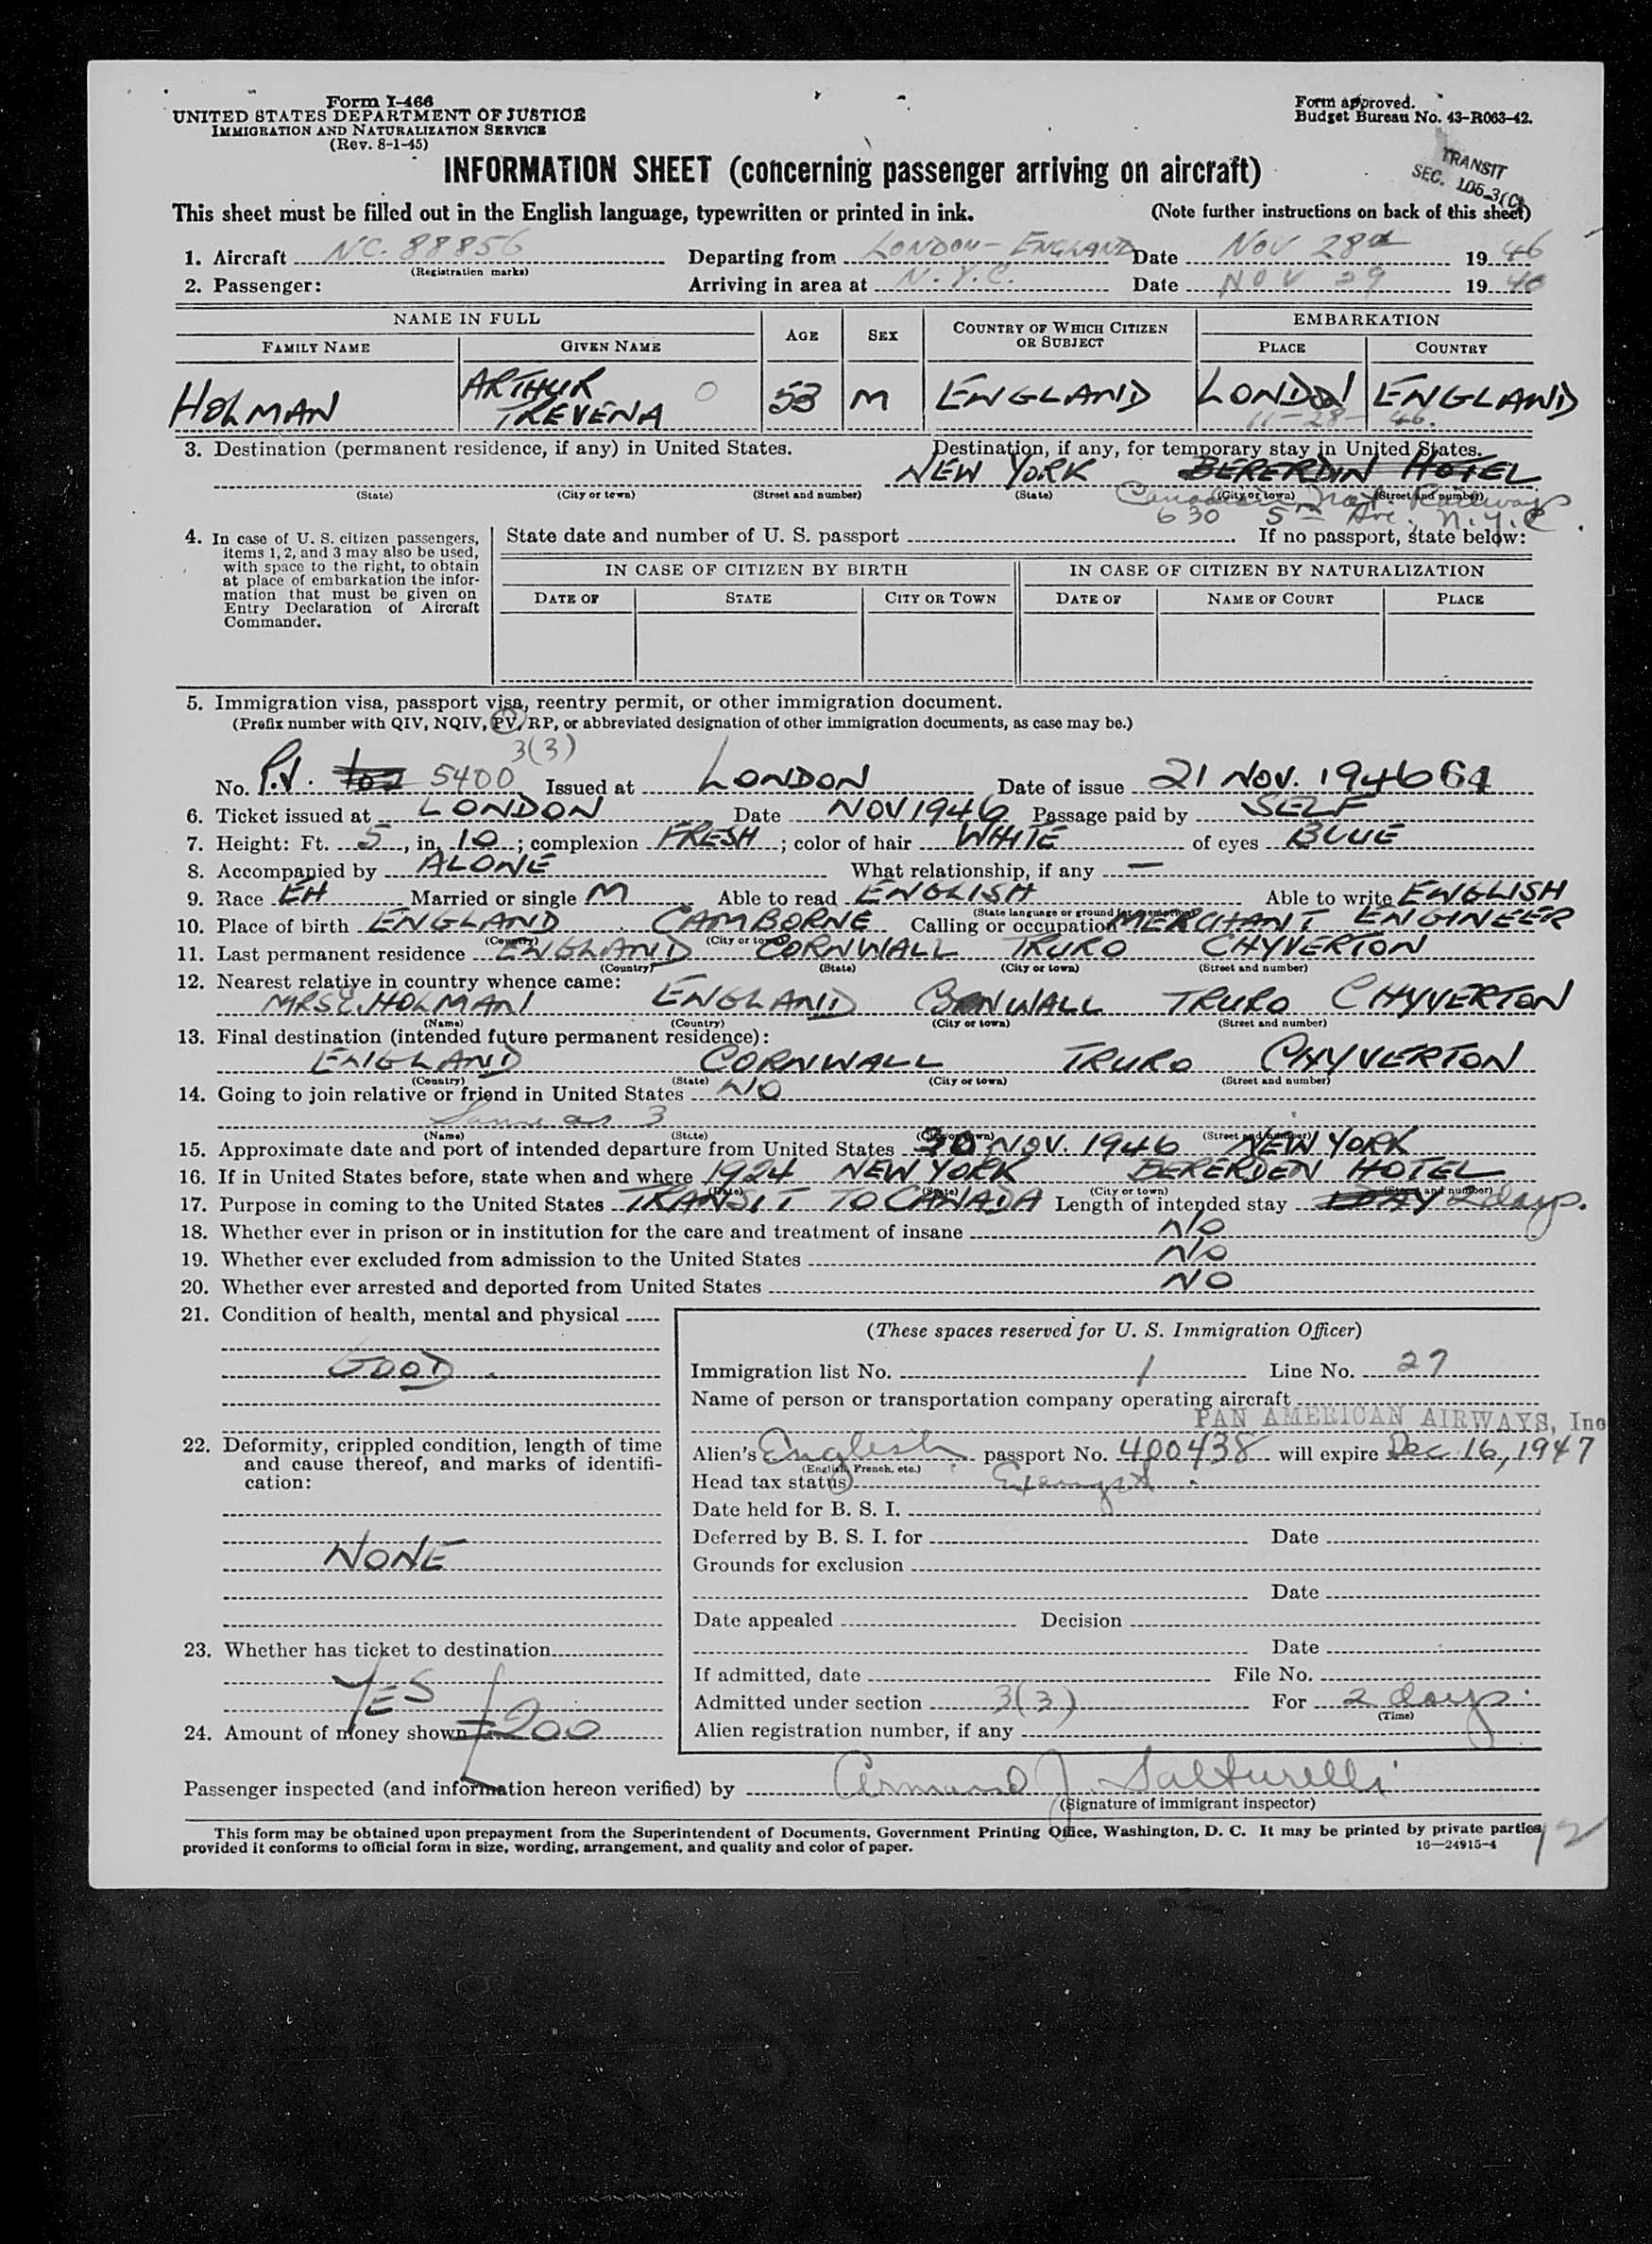 Form I-466
UNITED STATES DEPARTMENT OF JUSTICE
IMMIGRATION AND NATURALIZATION SERVICE
(Rev. 8-1-45)
Form approved.
Budget Bureau No. 43-R063-42.
INFORMATION SHEET (concerning passenger arriving on aircraft)
TRANSIT
SEC. 105-3(C)
This sheet must be filled out in the English language, typewritten or printed in ink. (Note further instructions on back of this sheet)
1. Aircraft NC. 88856 Departing from LONDON - ENGLAND Date NOV 28 1946
(Registration marks)
2. Passenger: Arriving in area at N.Y.C. Date NOV 29 1946
NAME IN FULL AGE SEX COUNTRY OF WHICH CITIZEN OR SUBJECT EMBARKATION
FAMILY NAME GIVEN NAME PLACE COUNTRY
HOLMAN ARTHUR TREVENA 53 M ENGLAND LONDON ENGLAND
11-28-46.
3. Destination (permanent residence, if any) in United States. Destination, if any, for temporary stay in United States.
NEW YORK BERERDIN HOTEL
(State) (City or town) (Street and number) (State) (City or town) (Street and number)
Canadian Nat. Railways
630 5th Ave. N.Y.C.
4. In case of U. S. citizen passengers, items 1, 2, and 3 may also be used, with space to the right, to obtain at place of embarkation the information that must be given on Entry Declaration of Aircraft Commander.
State date and number of U. S. passport If no passport, state below:
IN CASE OF CITIZEN BY BIRTH IN CASE OF CITIZEN BY NATURALIZATION
DATE OF STATE CITY OR TOWN DATE OF NAME OF COURT PLACE
5. Immigration visa, passport visa, reentry permit, or other immigration document.
(Prefix number with QIV, NQIV, PV, RP, or abbreviated designation of other immigration documents, as case may be.)
3(3)
No. P.V. 5400 Issued at LONDON Date of issue 21 NOV. 1946 64
6. Ticket issued at LONDON Date NOV 1946 Passage paid by SELF
7. Height: Ft. 5, in. 10; complexion FRESH; color of hair WHITE of eyes BLUE
8. Accompanied by ALONE What relationship, if any —
9. Race EH Married or single M Able to read ENGLISH Able to write ENGLISH
(State language or ground for exemption)
10. Place of birth ENGLAND CAMBORNE Calling or occupation MERCHANT ENGINEER
(Country) (City or town)
11. Last permanent residence ENGLAND CORNWALL TRURO CHYVERTON
(Country) (State) (City or town) (Street and number)
12. Nearest relative in country whence came:
MRS E. HOLMAN ENGLAND CORNWALL TRURO CHYVERTON
(Name) (Country) (City or town) (Street and number)
13. Final destination (intended future permanent residence):
ENGLAND CORNWALL TRURO CHYVERTON
(Country) (State) (City or town) (Street and number)
14. Going to join relative or friend in United States NO
Same as 3
(Name) (State) (City or town) (Street and number)
15. Approximate date and port of intended departure from United States 30 NOV. 1946 NEW YORK
16. If in United States before, state when and where 1924 NEW YORK BERERDEN HOTEL
(Date) (State) (City or town) (Street and number)
17. Purpose in coming to the United States TRANSIT TO CANADA Length of intended stay 1 DAY 2 days.
18. Whether ever in prison or in institution for the care and treatment of insane NO
19. Whether ever excluded from admission to the United States NO
20. Whether ever arrested and deported from United States NO
21. Condition of health, mental and physical
GOOD.
22. Deformity, crippled condition, length of time and cause thereof, and marks of identification:
NONE
23. Whether has ticket to destination
YES
24. Amount of money shown £200
(These spaces reserved for U. S. Immigration Officer)
Immigration list No. 1 Line No. 27
Name of person or transportation company operating aircraft
PAN AMERICAN AIRWAYS, Inc
Alien's English passport No. 400438 will expire Dec 16, 1947
(English, French, etc.)
Head tax status Exempt.
Date held for B. S. I.
Deferred by B. S. I. for Date
Grounds for exclusion
Date
Date appealed Decision
Date
If admitted, date File No.
Admitted under section 3(3) For 2 days.
(Time)
Alien registration number, if any
Passenger inspected (and information hereon verified) by Armand J. Salturelli
(Signature of immigrant inspector)
This form may be obtained upon prepayment from the Superintendent of Documents, Government Printing Office, Washington, D. C. It may be printed by private parties,
provided it conforms to official form in size, wording, arrangement, and quality and color of paper. 16—24915-4
12